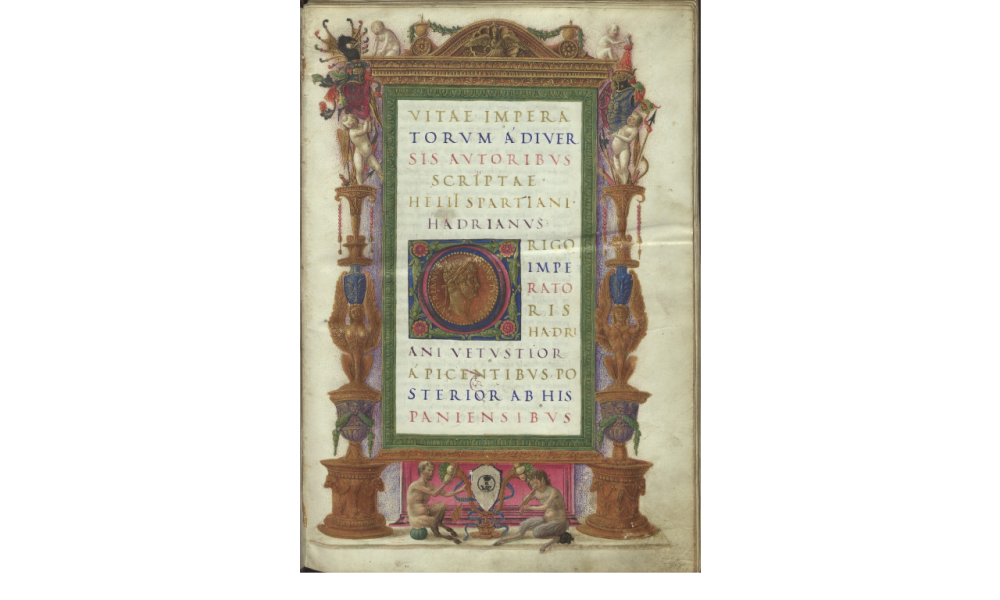 VITAE IMPERA
TORVM A DIVER
SIS AVTORIBVS
SCRIPTAE·
HELII SPARTIANI·
HADRIANVS
RIGO
IMPE
RATO
RIS
HADRI
ANI VETVSTIOR
A PICENTIBVS·PO
STERIOR AB HIS
PANIENSIBVS